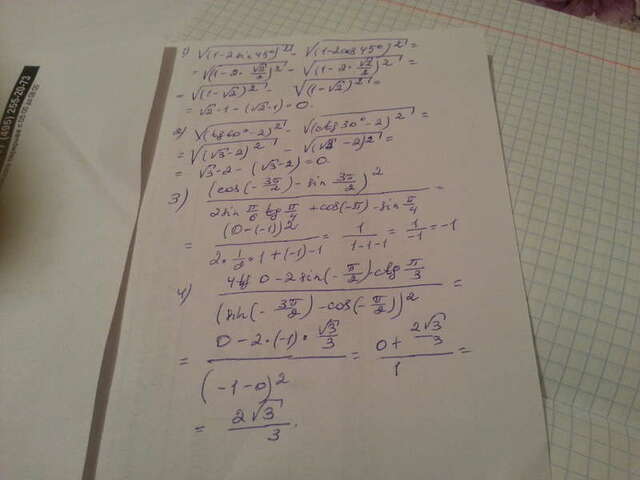 1) √(1-2sin45°)² - √(1-2cos45°)² =
= √(1-2·√2/2)² - √(1-2·√2/2)² =
= √(1-√2)² - √(1-√2)² =
= √2-1-(√2-1)=0.
2) √(tg60°-2)² - √(ctg30°-2)² =
= √(√3-2)² - √(√3-2)² =
= √3-2-(√3-2)=0.
3) (cos(-3π/2)-sin 3π/2)² / 2sin π/6 tg π/4 +cos(-π)-sin π/4 =
= (0-(-1))² / 2·1/2·1+(-1)-1 = 1/1-1-1 = 1/-1 = -1
4) 4tg 0-2sin(-π/2)·ctg π/3 / (sin(-3π/2)-cos(-π/2))² =
= 0-2·(-1)·√3/3 / (-1-0)² = 0+2√3/3 / 1 =
= 2√3/3.
(495) 256-20-73